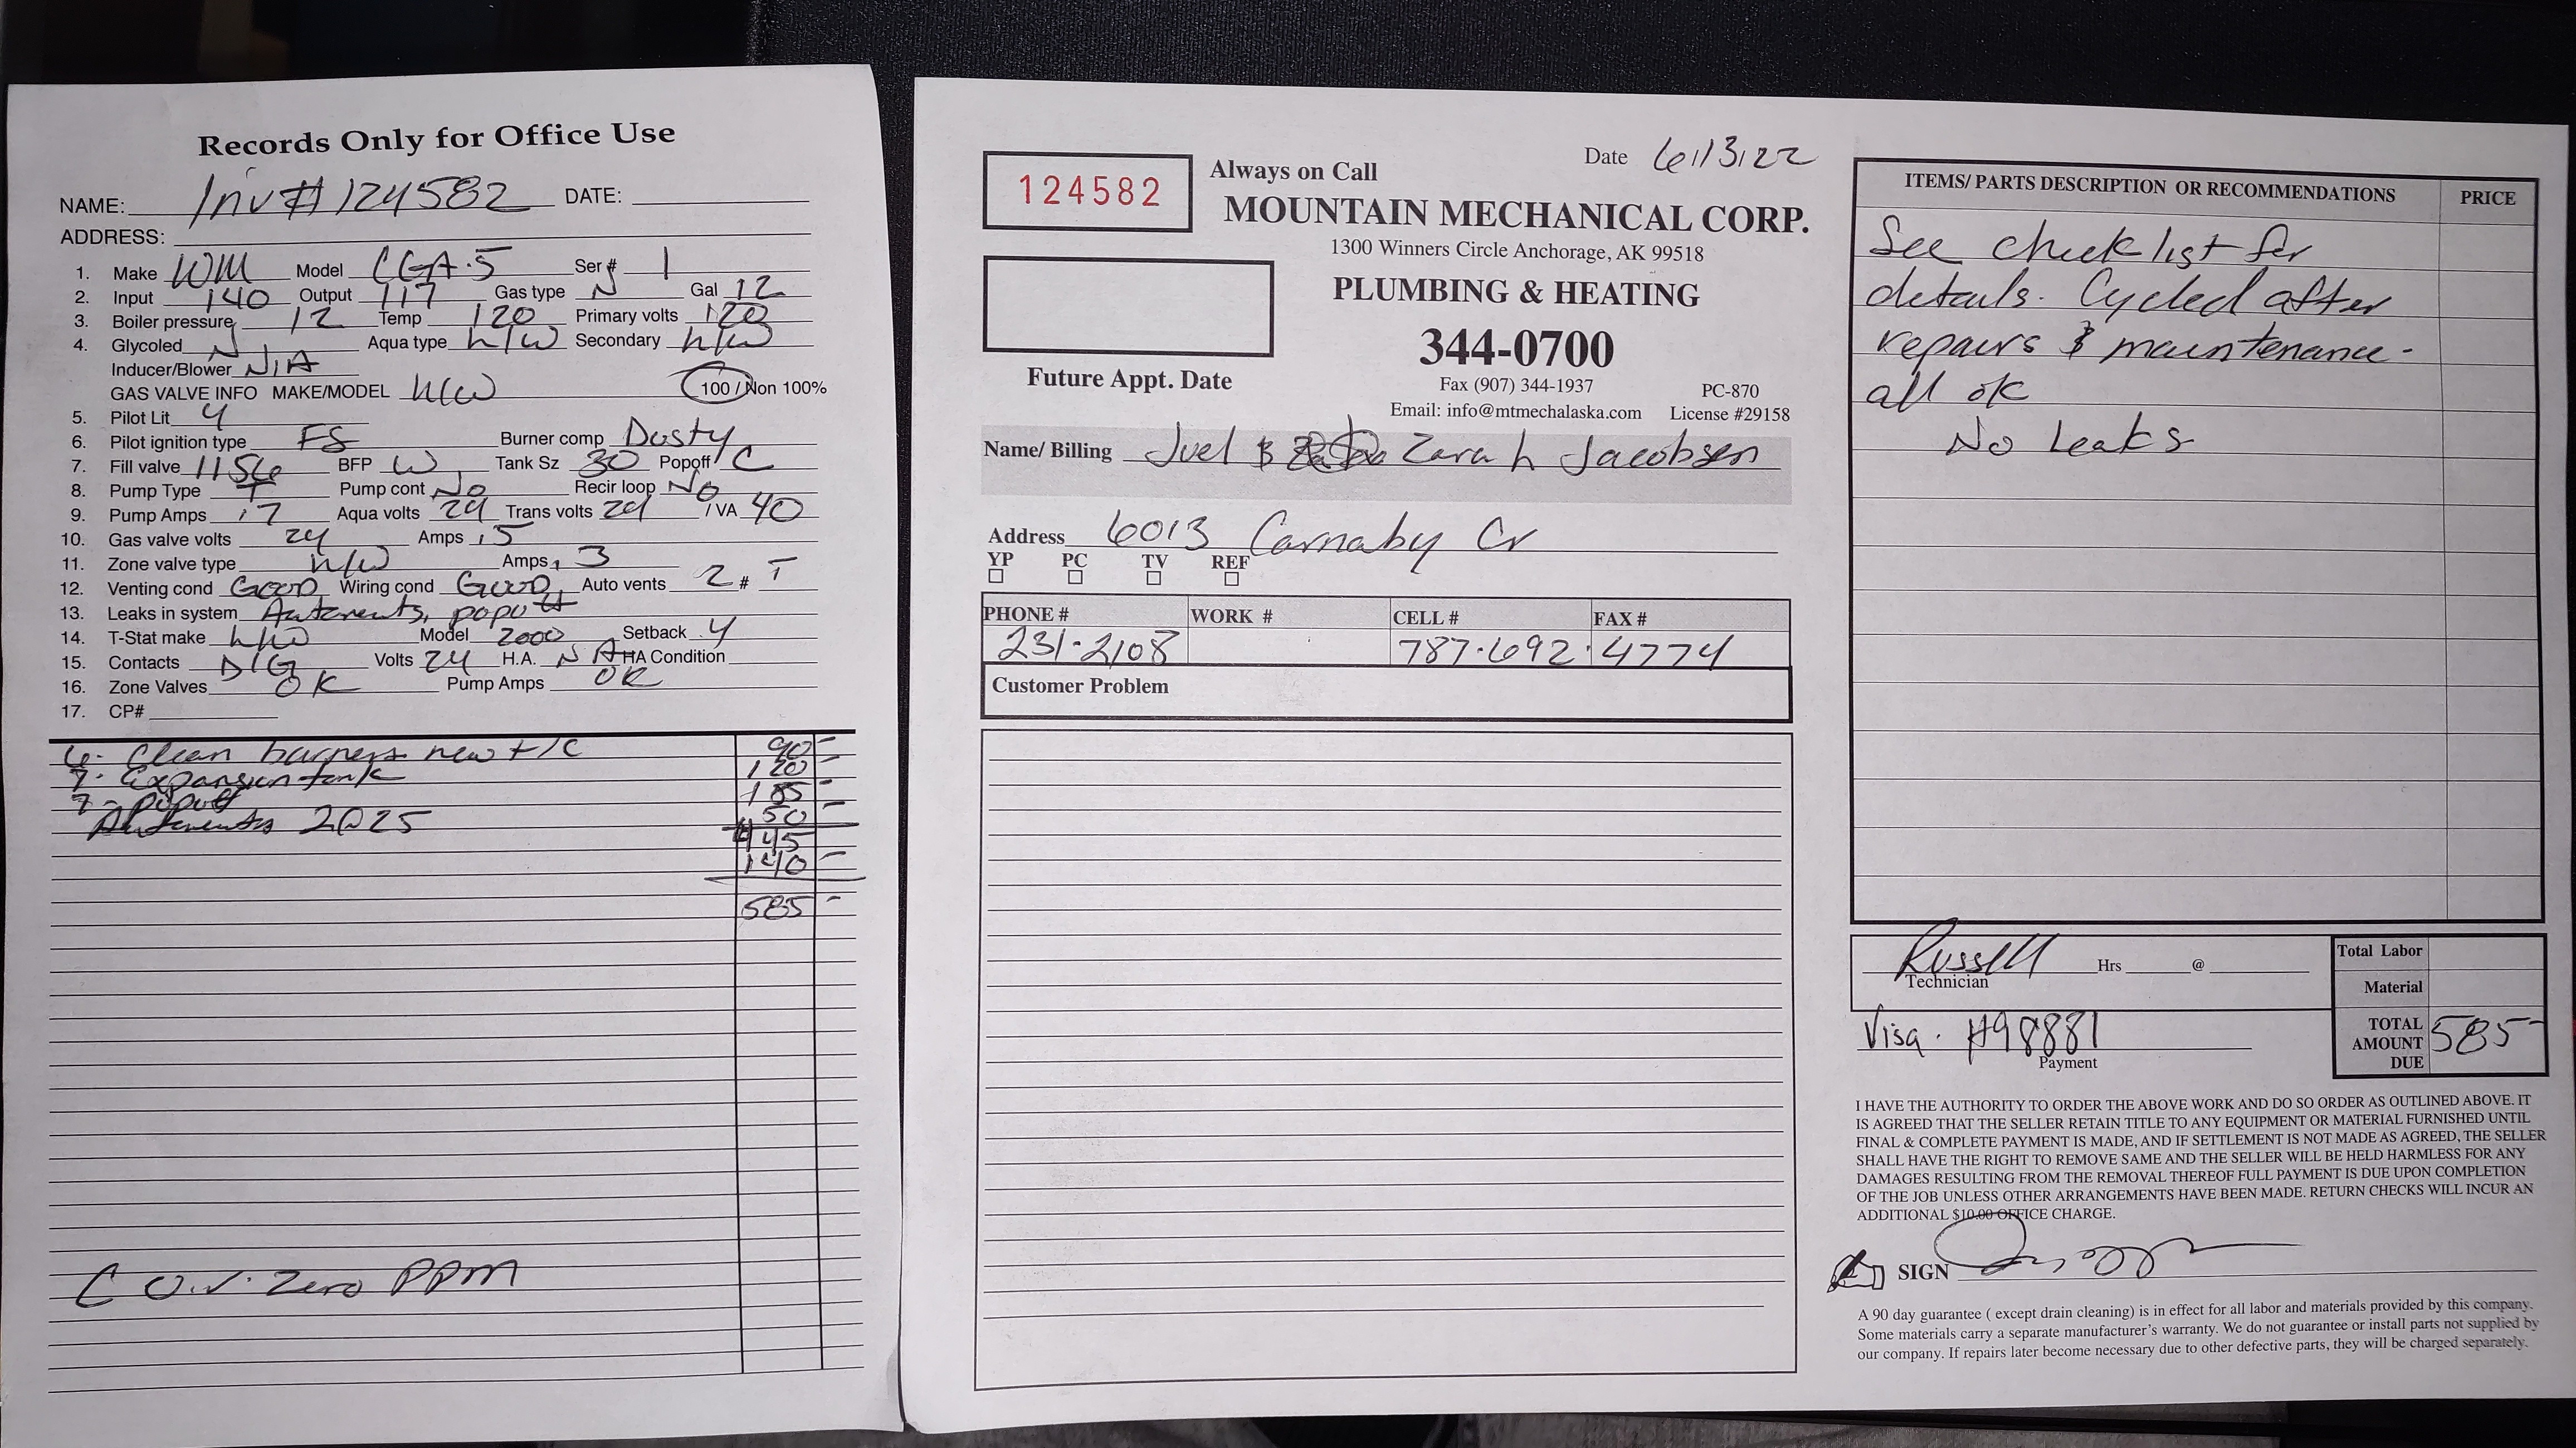 Records Only for Office Use
NAME: Inv# 124582 DATE:
ADDRESS:
1. Make WM Model CGA-5 Ser # 1
2. Input 140 Output 117 Gas type N Gal 12
3. Boiler pressure 12 Temp 120 Primary volts 120
4. Glycoled N Aqua type h/w Secondary h/w
Inducer/Blower N/A
GAS VALVE INFO MAKE/MODEL h/w 100 / Non 100%
5. Pilot Lit y
6. Pilot ignition type FS Burner comp Dusty
7. Fill valve 1156 BFP W Tank Sz 30 Popoff C
8. Pump Type T Pump cont No Recir loop No
9. Pump Amps .7 Aqua volts 24 Trans volts 24 / VA 40
10. Gas valve volts 24 Amps .5
11. Zone valve type h/w Amps .3
12. Venting cond GOOD Wiring cond GOOD Auto vents 2 # T
13. Leaks in system Autovents, popoff
14. T-Stat make h/w Model 2000 Setback y
15. Contacts DIG Volts 24 H.A. NA HA Condition
16. Zone Valves OK Pump Amps OK
17. CP#
6- Clean burners new t/c 90-
7- Expansion tank 120-
7- popoff 185-
Autovents 2@25 50-
445
140-
585-
C O.V. Zero PPM
124582
Future Appt. Date
Always on Call
Date 6/13/22
MOUNTAIN MECHANICAL CORP.
1300 Winners Circle Anchorage, AK 99518
PLUMBING & HEATING
344-0700
Fax (907) 344-1937 PC-870
Email: info@mtmechalaska.com License #29158
Name/ Billing Joel & Zarah Jacobsen
Address 6013 Carnaby Cr
YP PC TV REF
PHONE # WORK # CELL # FAX #
231-2108 787-692-4774
Customer Problem
ITEMS/ PARTS DESCRIPTION OR RECOMMENDATIONS PRICE
See check list for
details. Cycled after
repairs & maintenance-
all ok
No Leaks
Russell Hrs @
Technician
Total Labor
Material
Visa. H98881
Payment
TOTAL AMOUNT DUE 585-
I HAVE THE AUTHORITY TO ORDER THE ABOVE WORK AND DO SO ORDER AS OUTLINED ABOVE. IT
IS AGREED THAT THE SELLER RETAIN TITLE TO ANY EQUIPMENT OR MATERIAL FURNISHED UNTIL
FINAL & COMPLETE PAYMENT IS MADE, AND IF SETTLEMENT IS NOT MADE AS AGREED, THE SELLER
SHALL HAVE THE RIGHT TO REMOVE SAME AND THE SELLER WILL BE HELD HARMLESS FOR ANY
DAMAGES RESULTING FROM THE REMOVAL THEREOF FULL PAYMENT IS DUE UPON COMPLETION
OF THE JOB UNLESS OTHER ARRANGEMENTS HAVE BEEN MADE. RETURN CHECKS WILL INCUR AN
ADDITIONAL $10.00 OFFICE CHARGE.
SIGN
A 90 day guarantee ( except drain cleaning) is in effect for all labor and materials provided by this company.
Some materials carry a separate manufacturer's warranty. We do not guarantee or install parts not supplied by
our company. If repairs later become necessary due to other defective parts, they will be charged separately.